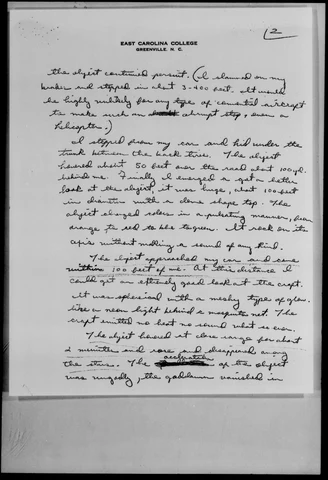 2
EAST CAROLINA COLLEGE
GREENVILLE, N. C.
the object continued pursuit. (I slammed on my
brakes and stopped in about 3-400 feet. It would
be highly unlikely for any type of conventional aircraft
to make such an abrupt stop, even a
helicopter.)
I stepped from my car and hid under the
trunk between the back tires. The object
hovered about 50 feet over the road about 100 yd.
behind me. Finally I emerged to get a better
look at the object, it was huge, about 100 feet
in diameter with a dome shape top. The
object changed colors in a pulsating manner, from
orange to red to blue to green. It rock on its
axis without making a sound of any kind.
The object approached my car and came
within 100 feet of me. At this distance I
could get an extremely good look at the craft.
It was spherical with a meshy type of glow.
like a neon light behind a mosquito net. The
craft emitted no heat no sound what so ever.
The object hovered at close range for about
2 minutes and rose and disappeared among
the stars. The acceleration of the object
was ungodly, the goddamn vanished in